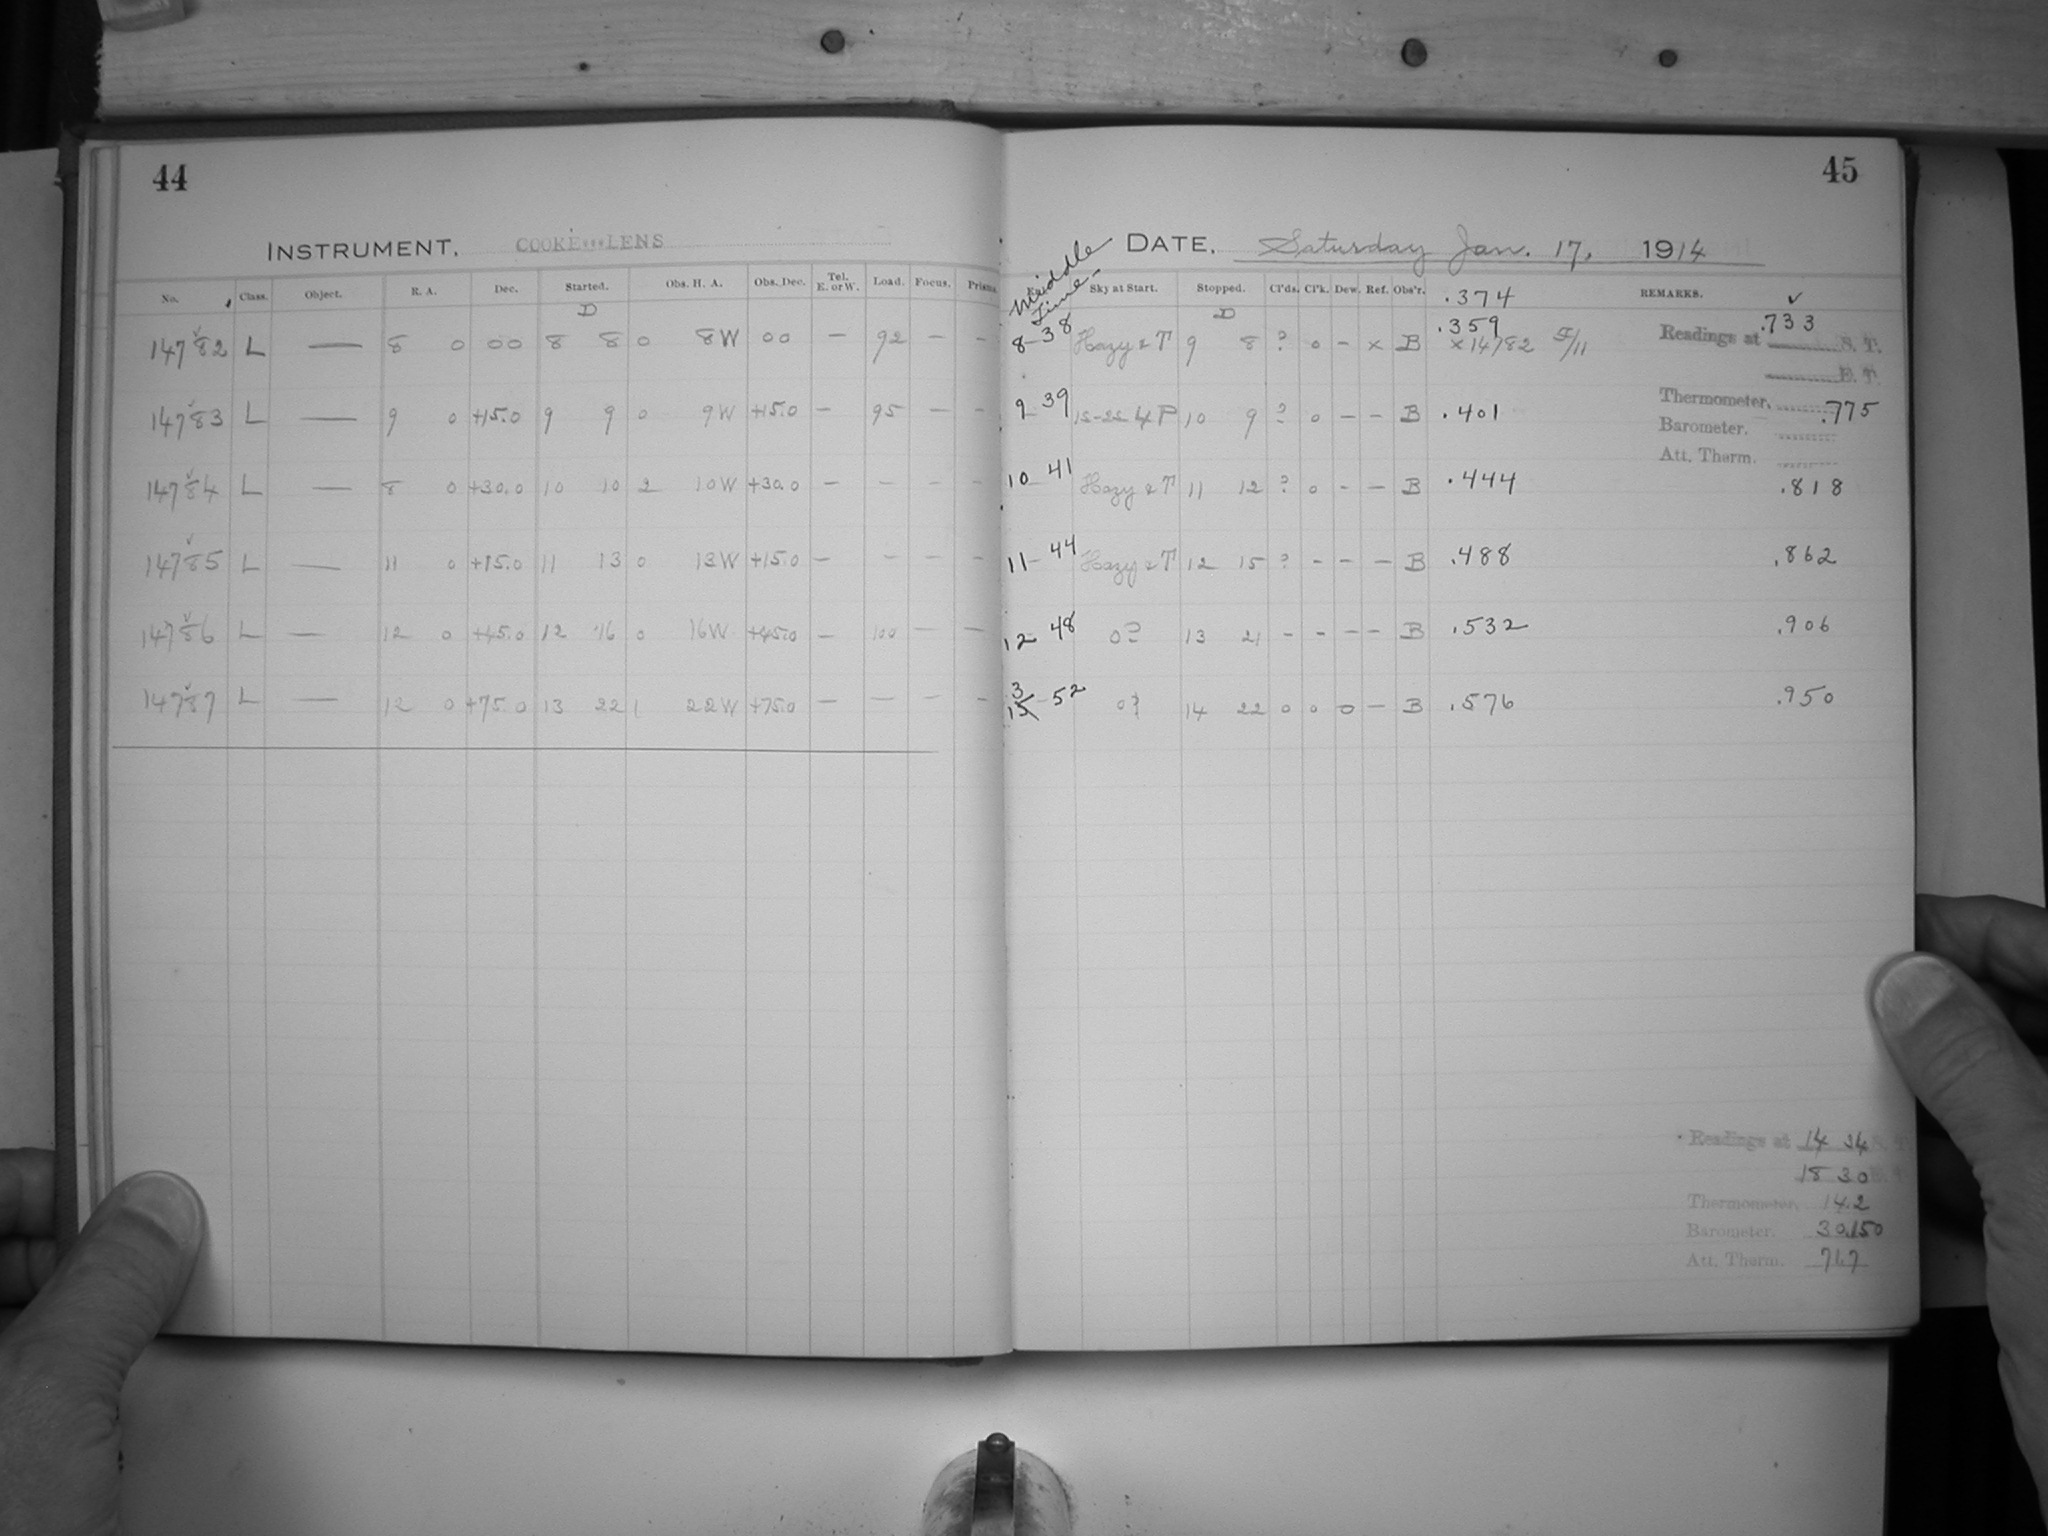 44
INSTRUMENT. COOKE LENS
No. Class. Object. R. A. Dec. Started. Obs. H. A. Obs. Dec. Tel. E. or W. Load. Focus. Prisms.
D
14782 L — 8 0 00 8 8 0 8W 00 — 92 — —
14783 L — 9 0 +15.0 9 9 0 9W +15.0 — 95 — —
14784 L — 8 0 +30.0 10 10 2 10W +30.0 — — — —
14785 L — 11 0 +15.0 11 13 0 13W +15.0 — — — —
14786 L — 12 0 +45.0 12 16 0 16W +45.0 — 100 — —
14787 L — 12 0 +75.0 13 22 1 22W +75.0 — — — —
45
DATE. Saturday Jan. 17, 1914
Middle Time Sky at Start. Stopped. Cl'ds. Cl'k. Dew. Ref. Obs'r. .374 REMARKS. ✓
D
.359 .733
8-38 Hazy & T 9 8 ? 0 - x B x 14782 5/11 Readings at S. T.
E. T.
Thermometer.
9 39 4 P 10 9 ? 0 — — B .401 .775
Barometer.
Att. Therm.
10 41 Hazy & T 11 12 ? 0 - — B .444 .818
11-44 Hazy & T 12 15 ? - - — B .488 .862
12 48 0? 13 21 - - — — B .532 .906
13 52 14 22 0 0 0 — B .576 .950
Readings at 14 34
18 30
Thermometer. 14.2
Barometer. 30.150
Att. Therm.